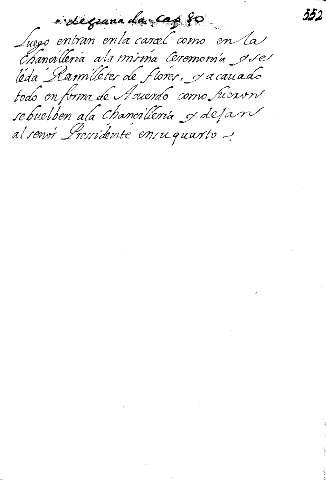 de granada cap 80
352
Luego entran en la carcel como en la
Chancilleria a la misma Ceremonia y se l
léda Ramilletes de flores, y acavado
todo en forma de Acuerdo como fueron
se buelben a la Chancilleria y dejan
al señor Pressidente en su quarto